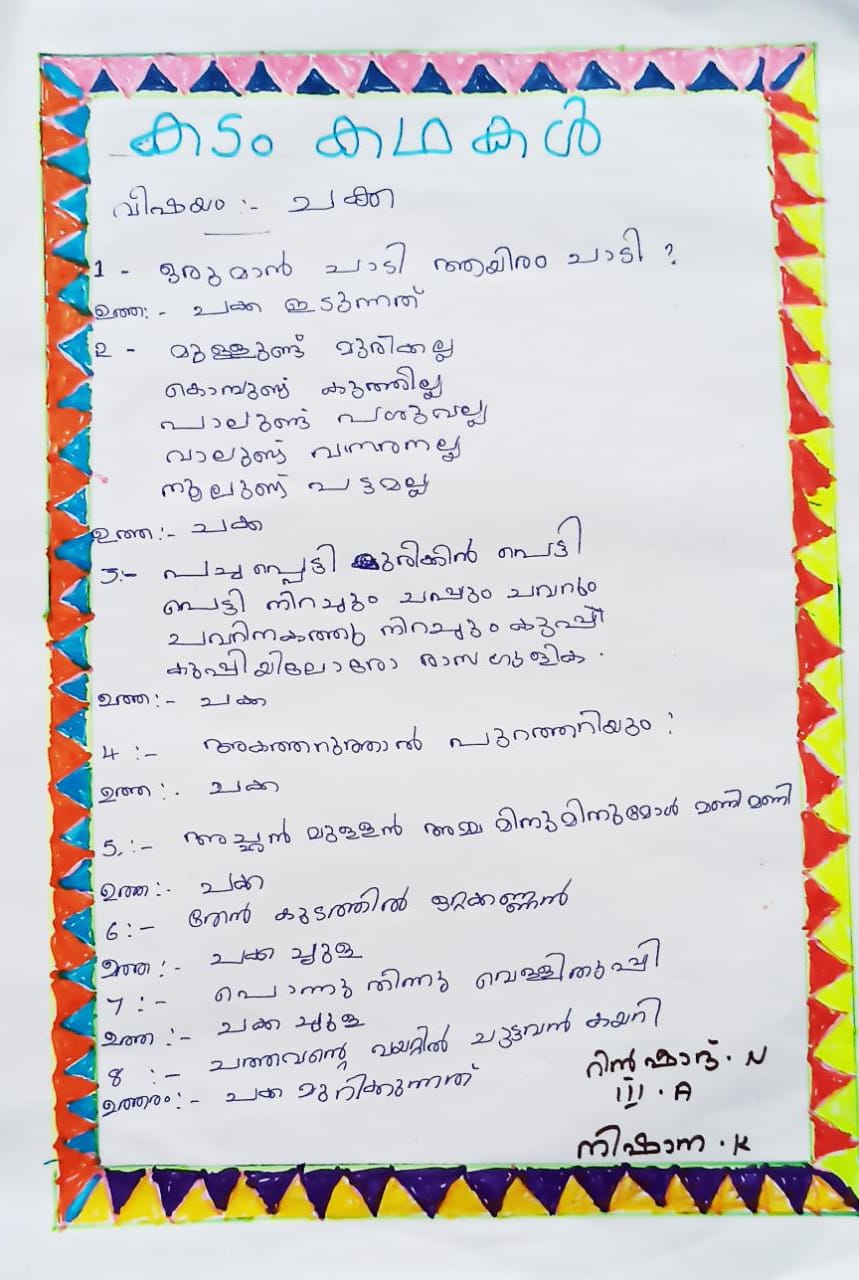 കടം കഥകൾ
വിഷയം :- ചക്ക
1 - ഒരുമാൻ ചാടി ആയിരം ചാടി ?
ഉത്ത:- ചക്ക ഇടുന്നത്
2 - മുള്ളുണ്ട് മുരിക്കല്ല
കൊമ്പുണ്ട് കുത്തില്ല
പാലുണ്ട് പശുവല്ല
വാലുണ്ട് വാനരനല്ല
നൂലുണ്ട് പട്ടമല്ല
ഉത്ത:- ചക്ക
3:- പച്ചപ്പെട്ടി മുരിക്കിൻ പെട്ടി
പെട്ടി നിറച്ചും ചപ്പും ചവറും
ചവറിനകത്തു നിറച്ചും കുപ്പി
കുപ്പിയിലോരോ രാസ ഗുളിക .
ഉത്ത:- ചക്ക
4 :- അകത്തറുത്താൽ പുറത്തറിയും :
ഉത്ത:. ചക്ക
5.:- അച്ഛൻ മുള്ളൻ അമ്മ മിനുമിനു മോൾ മണിമണി
ഉത്ത:. ചക്ക
6:- തേൻ കുടത്തിൽ ഒറ്റക്കണ്ണൻ
ഉത്ത:- ചക്ക ച്ചുള
7 :- പൊന്നു തിന്നു വെള്ളിതുപ്പി
ഉത്ത :- ചക്ക ച്ചുള
8 :- ചത്തവന്റെ വയറ്റിൽ ചുട്ടവൻ കയറി
ഉത്തരം:- ചക്ക മുറിക്കുന്നത്
റിൻഷാദ് . N
III . A
നിഷാന . K